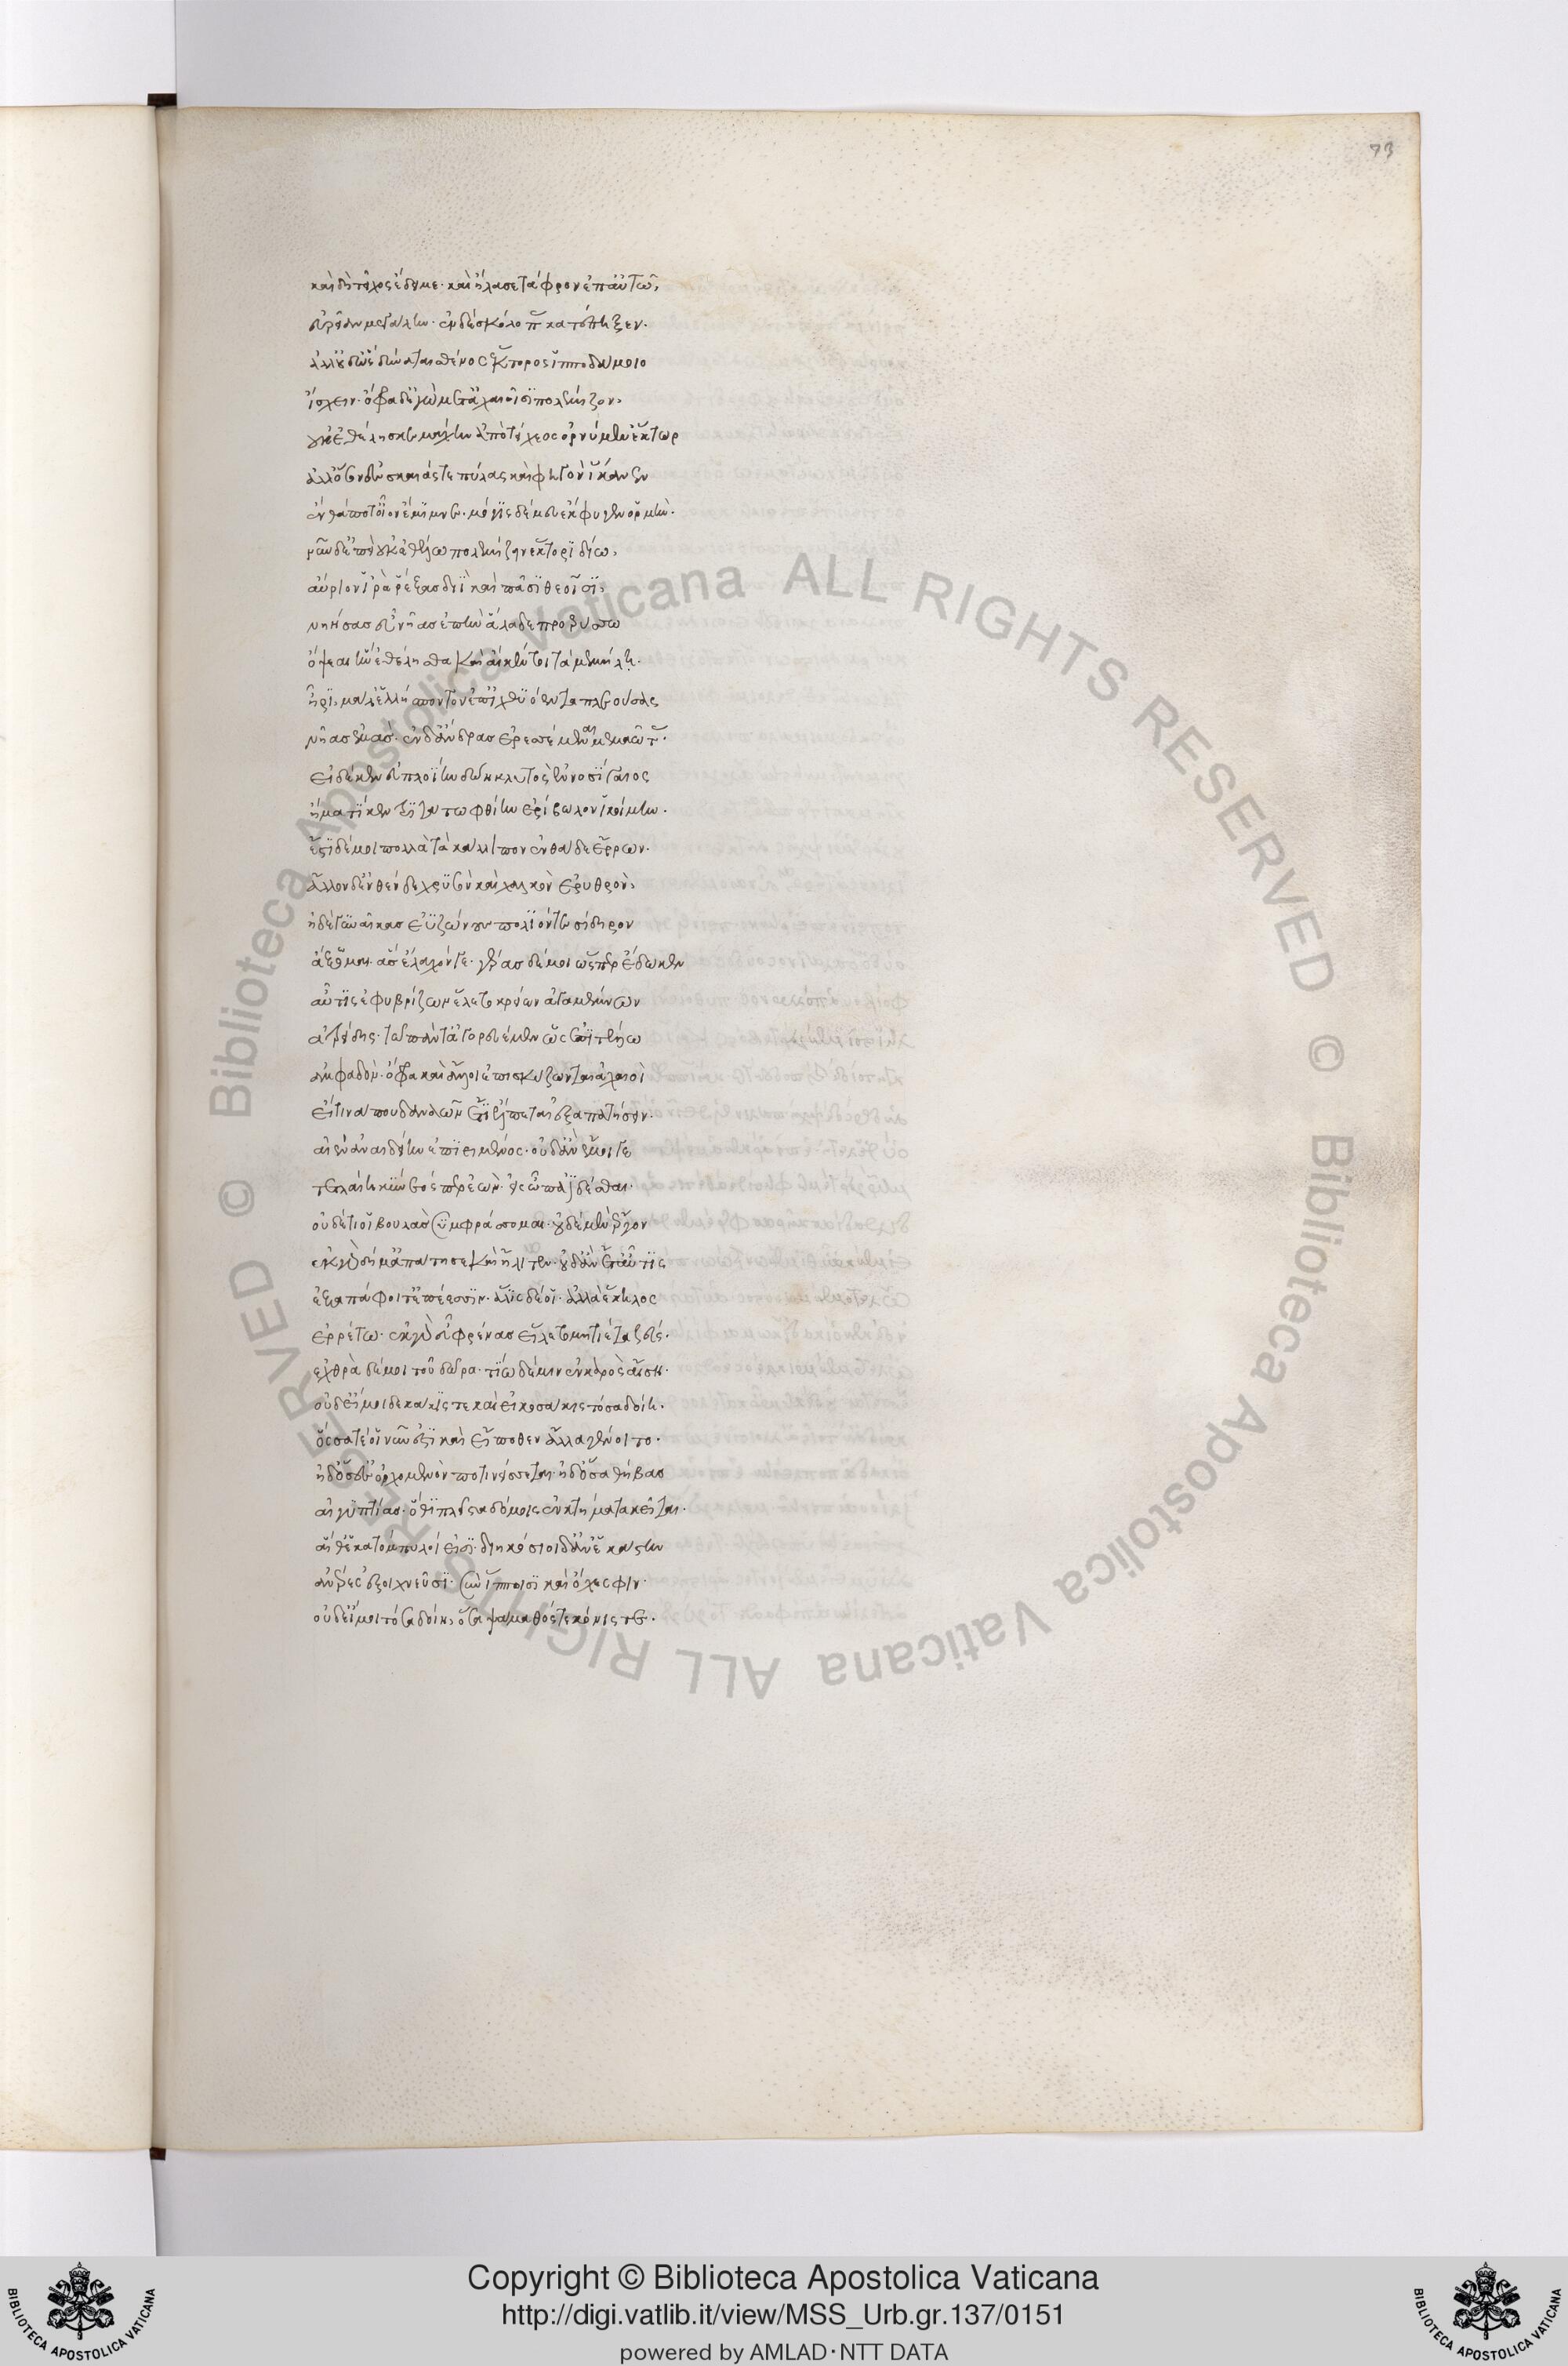 73
καὶ δὴ τεῖχος ἔδειμε· καὶ ἤλασε τάφρον ἐπ' αὐτῶ,
εὐρεῖαν μεγάλην· ἐν δὲ σκόλοπας κατέπηξεν·
ἀλλ' οὐδ' ὣς δύναται σθένος ἕκτορος ἱπποδάμοιο
ἴσχειν· ὄφρα δ' ἐγὼ μετ' ἀχαιοῖσι πολέμιζον,
οὐκ ἐθέλησκε μάχην ἀπὸ τείχεος ὀρνύμεν ἕκτωρ
ἀλλ' ὅσον ἐς σκαιάς τε πύλας καὶ φηγὸν ἵκανεν
ἔνθά ποτ' οἶον ἔμιμνε· μόγις δέ μευ ἔκφυγεν ὁρμήν·
νῦν δ' ἐπεὶ οὐκ ἐθέλω πολεμίζειν ἕκτορι δίω,
αὔριον ἱρὰ ῥέξας διῒ καὶ πᾶσι θεοῖσι,
νηήσας εὖ νῆας ἐπὴν ἅλαδε προερύσσω
ὄψεαι ἢν ἐθέλησθα καὶ αἴ κέν τοι τὰ μεμήλη·
ἦρι μάλ' ἑλλήσποντον ἐπ' ἰχθυόεντα πλεούσας
νῆας ἐμάς· ἐν δ' ἄνδρας ἐρεσσέμεναι μεμαῶτας·
εἰ δέ κεν εὐπλοΐην δώη κλυτὸς ἐννοσίγαιος
ἤματί κεν τριτάτω φθίην ἐρίβωλον ἱκοίμην·
ἔστι δέ μοι πολλὰ τὰ κάλλιπον ἐνθάδε ἔρρων·
ἄλλον δ' ἐνθένδε χρυσὸν καὶ χαλκὸν ἐρυθρὸν,
ἠδὲ γυναῖκας ἐϋζώνους πολιόν τε σίδηρον
ἄξομαι· ἅσσ' ἔλαχόν γε· γέρας δέ μοι ὅσπερ ἔδωκεν
αὖτις ἐφυβρίζων ἕλετο κρείων ἀγαμέμνων
ἀτρείδης· τῷ πάντ' ἀγορευέμεν ὡς ἐπιτέλλω
ἀμφαδόν· ὄφρα καὶ ἄλλοι ἐπισκύζωνται ἀχαιοὶ
εἴ τινά που δαναῶν ἔτι ἔλπεται ἐξαπατήσειν·
αἰὲν ἀναιδείην ἐπιειμένος· οὐδ' ἂν ἔμοιγε
τετλαίη κύνεός περ ἐὼν· εἰς ὦπα ἰδέσθαι·
οὐδέ τι οἱ βουλὰς συμφράσσομαι· οὐδὲ μὲν ἔργον
ἐκ γὰρ δή μ' ἀπάτησε καὶ ἤλιτεν· οὐδ' ἂν ἔτ' αὖτις
ἐξαπάφοιτ' ἐπέεσσιν· ἅλις δέ οἱ· ἀλλὰ ἕκηλος
ἐρρέτω· ἐκ γὰρ εὑ φρένας εἵλετο μητίετα ζεύς·
ἐχθρὰ δέ μοι τοῦ δῶρα· τίω δέ μιν ἐν καρὸς αἴση·
οὐδ' εἴ μοι δεκάκις τε καὶ εἰκοσάκις τόσα δοίη·
ὅσσά τέ οἱ νῦν ἐστὶ καὶ εἴ ποθεν ἄλλα γένοιτο·
ἠδ' ὅσσ' ἐς ὀρχομενὸν ποτινείσσεται· ἠδ' ὅσα θήβας
αἰγυπτίας· ὅθι πλεῖστα δόμοις ἐν κτήματα κεῖται·
αἵ θ' ἑκατόμπυλοί εἰσι· διηκόσιοι δ' ἀν' ἑκάστην
ἀνέρες ἐξοιχνεῦσι· σὺν ἵπποισι καὶ ὄχεσφιν·
οὐδ' εἴ μοι τόσα δοίη, ὅσα ψάμαθός τε κόνις τε·
Copyright © Biblioteca Apostolica Vaticana
http://digi.vatlib.it/view/MSS_Urb.gr.137/0151
powered by AMLAD·NTT DATA